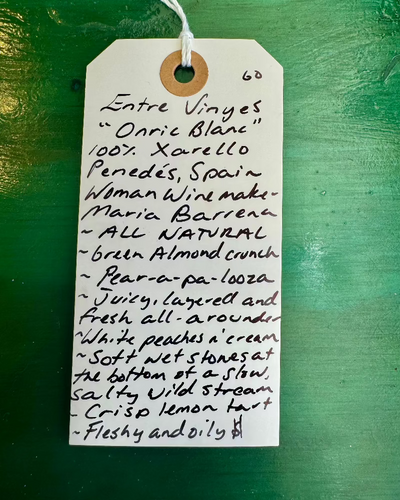 60
Entre Vinyes
"Onric Blanc"
100% Xarello
Penedés, Spain
Woman Winemake-
Maria Barrena
~ ALL NATURAL
~ Green Almond crunch
~ Pear-a-pa-looza
~ Juicy, layered and
fresh all-arounder
~White peaches n' cream
~Soft wet stones at
the bottom of a slow,
salty wild stream
- Crisp lemon tart
~Fleshy and oily